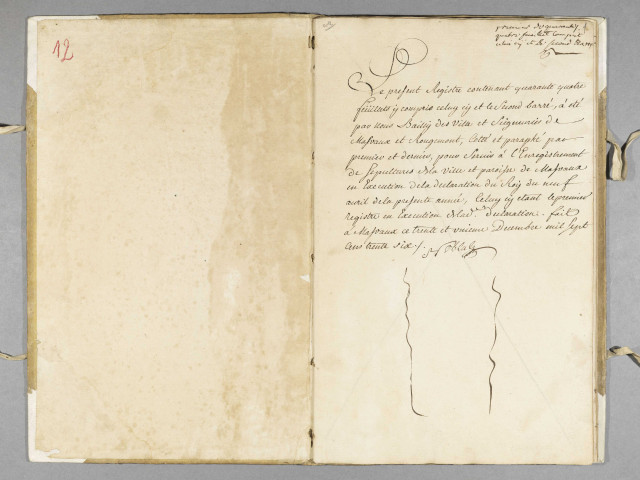 12
premier de quarante
quatre feuillets compris
celuy cy et le second barré
Le present Registre contenant quarante quatre
feüillets y compris celuy cy et le Second barré, a été
par Nous Bailly des Ville et Seigneuries de
Masvaux et Rougemont, Cotté et paraphé par
premier et dernier, pour Servir à l'Enregistrement
de Sepultures de la Ville et paroisse de Masvaux
en Execution de la declaration du Roy du neuf
avril de la presente année, Celuy cy etant le premier
registre en Execution de lad. declaration. fait
à Masvaux ce trente et unieme Decembre mil Sept
Cens trente Six